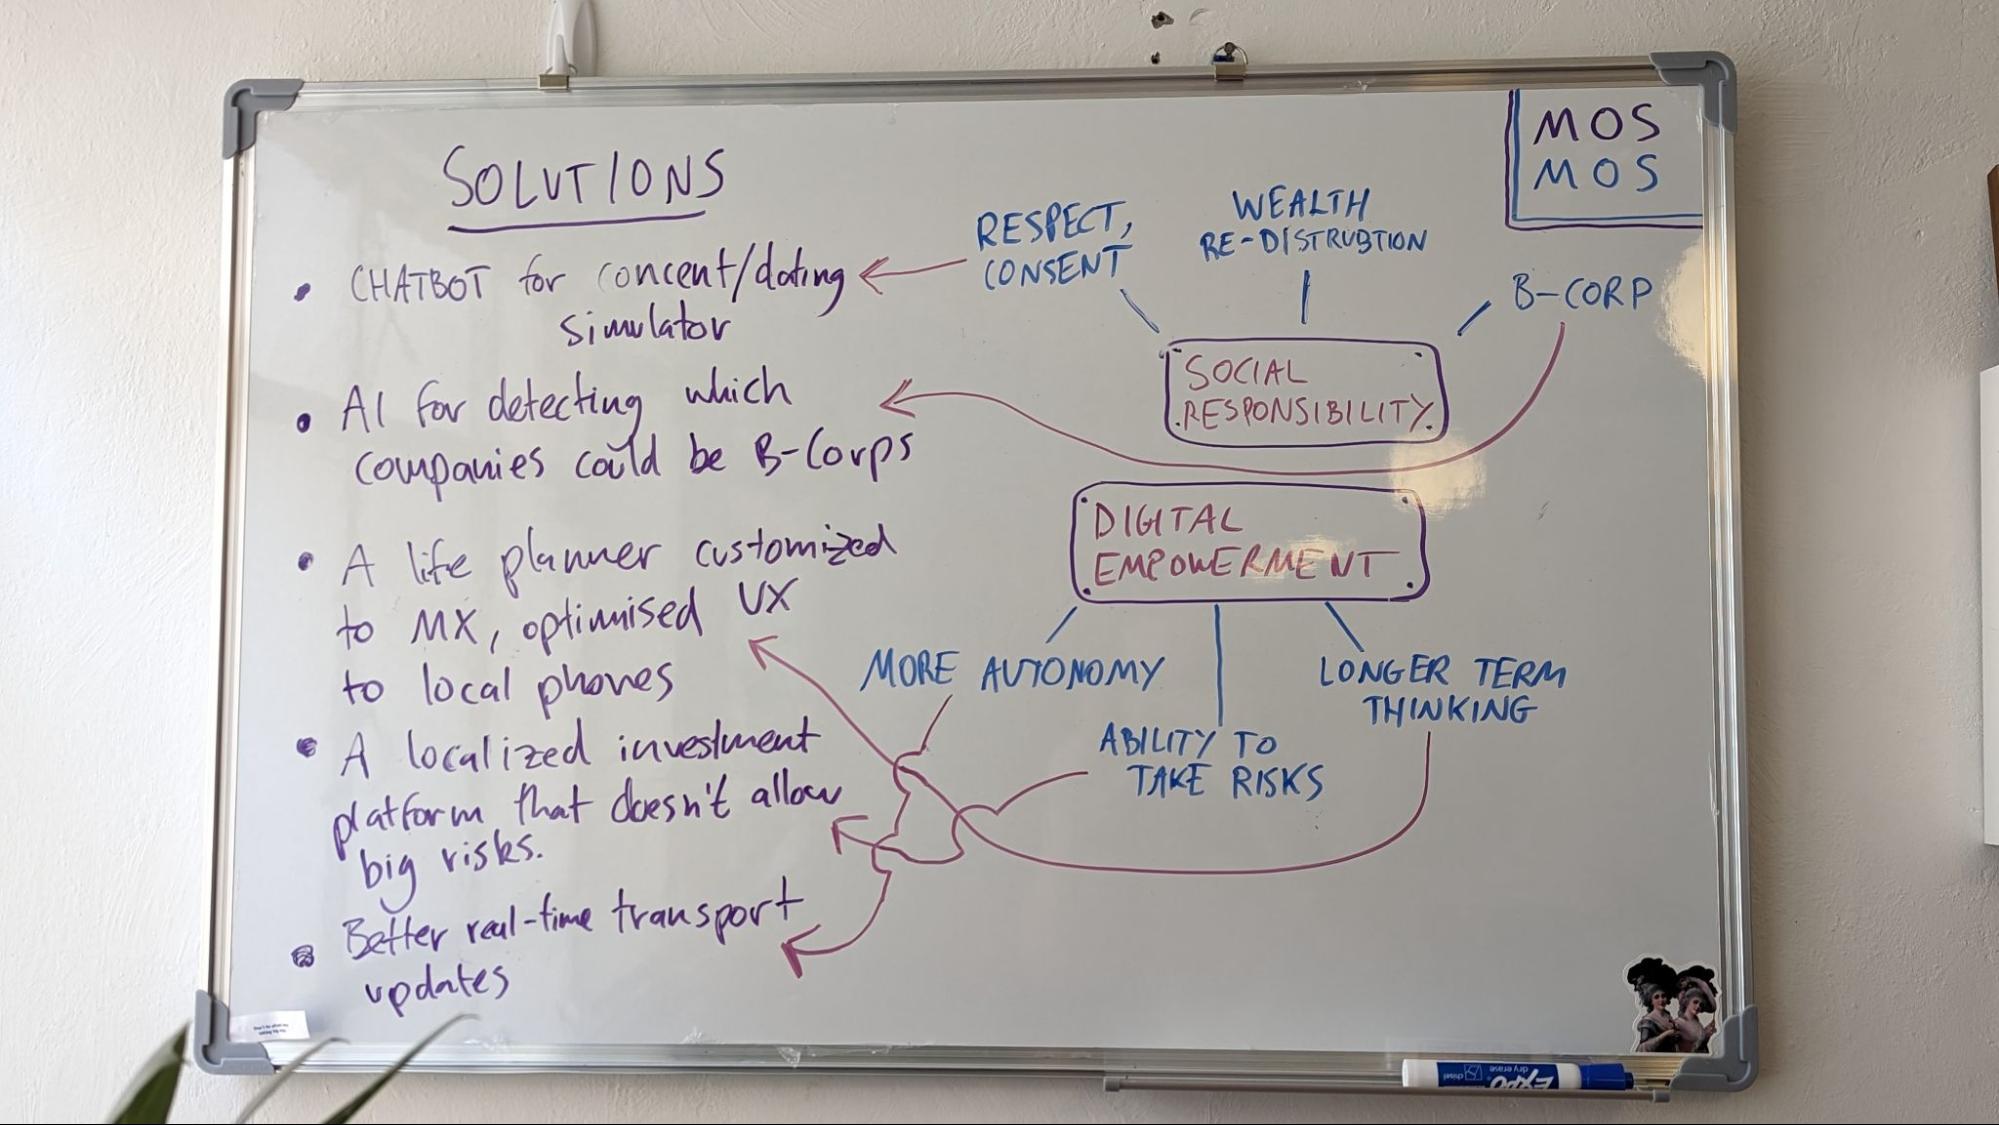 SOLUTIONS
• CHATBOT for concent/dating
simulator
• AI for detecting which
companies could be B-Corps
• A life planner customized
to MX, optimised UX
to local phones
• A localized investment
platform that doesn't allow
big risks.
• Better real-time transport
updates
MOS
MOS
RESPECT,
CONSENT
WEALTH
RE-DISTRUBTION
B-CORP
SOCIAL
RESPONSIBILITY
DIGITAL
EMPOWERMENT
MORE AUTONOMY
ABILITY TO
TAKE RISKS
LONGER TERM
THINKING
EXPO
dry erase
chisel